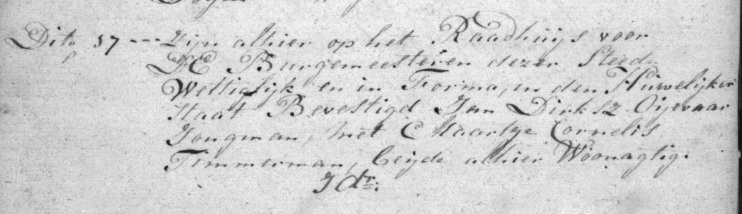 Dito 17 --- Zijn alhier op het Raadhuijs voor
HE Burgemeesteren dezer Steede
Wettiglijk en in Forma, in den Huwelijken
Staat Bevestigd Jan Dirksz. Oijevaar
Jongman, met Maartge Cornelis
Timmerman, beijde alhier Woonagtig.